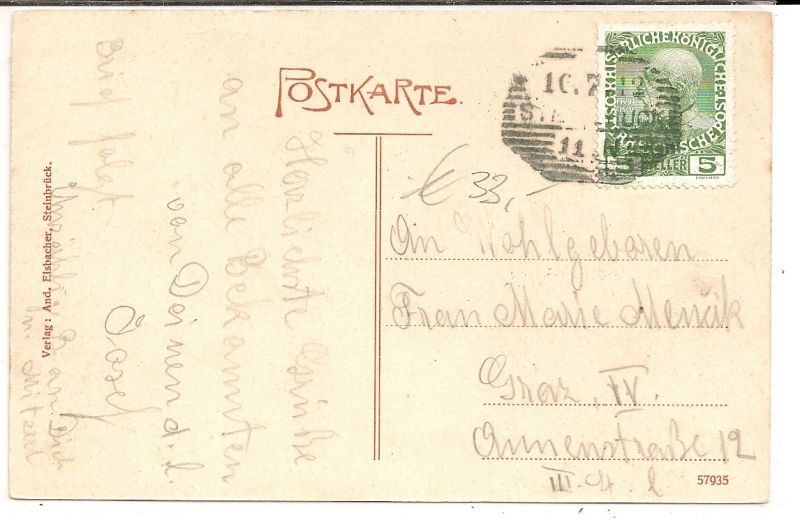 POSTKARTE.
16.7.12
11
KAISERLICHE KÖNIGLICHE ÖSTERREICHISCHE POST
5 HELLER 5
€ 33,-
An Wohlgeboren
Frau Marie Menčik
Graz, IV.
Annenstraße 12
III. St. l.
57935
Herzlichste Grüße
an alle Bekannten
von Deinen d. l.
Josef
Brief folgt
Verlag: And. Elsbacher, Steinbrück.